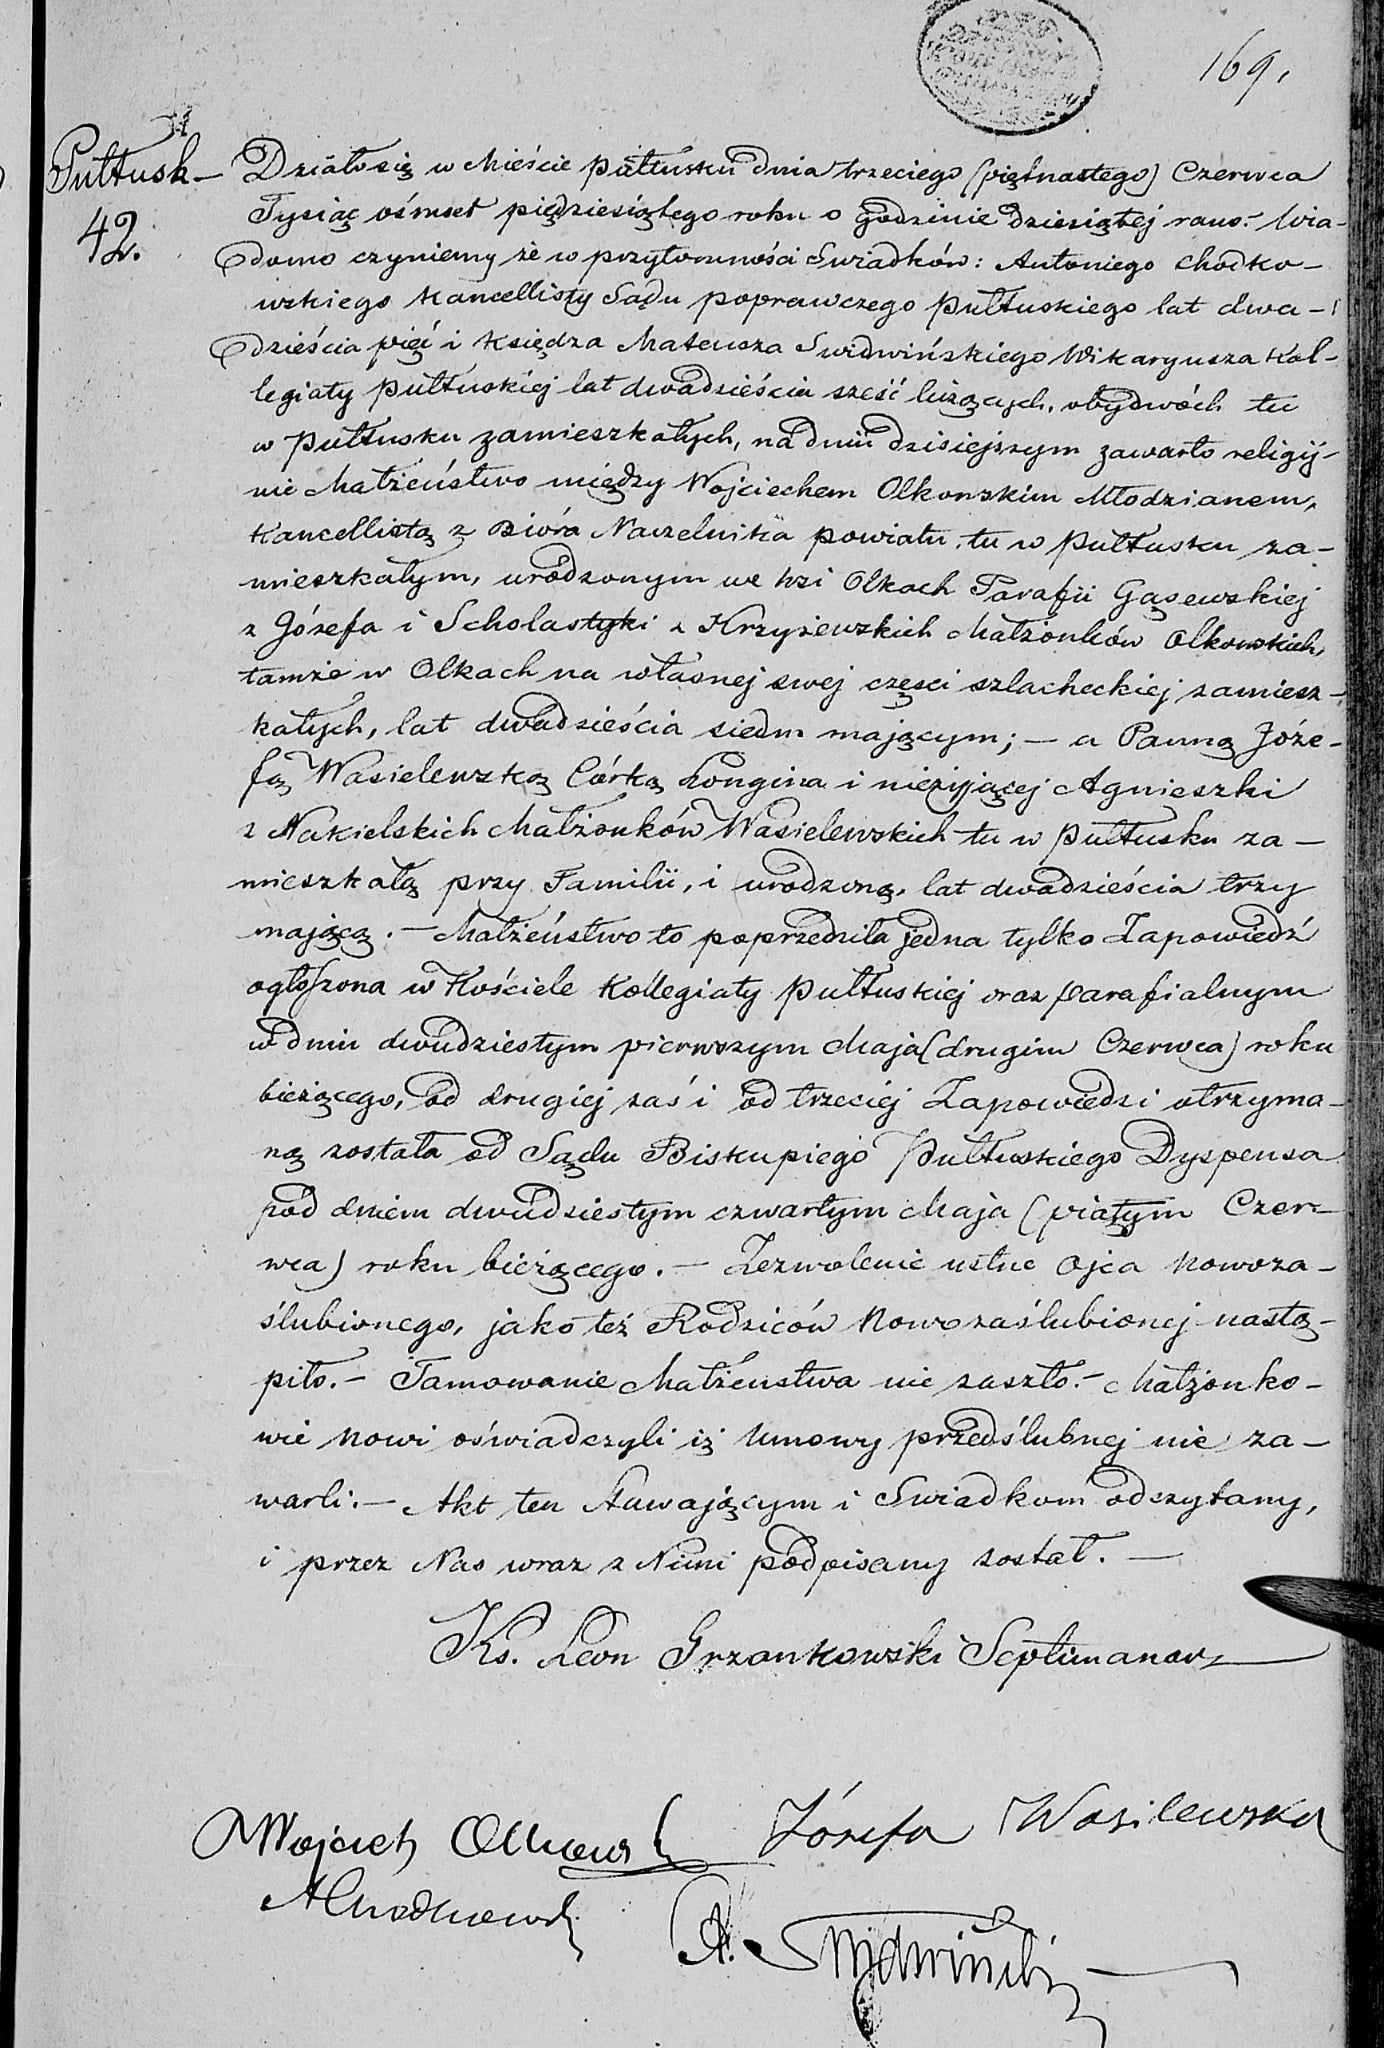 169.
Pułtusk –
42.
Działo się w Mieście Pułtusku dnia trzeciego (piętnastego) Czerwca
Tysiąc ośmset pięćdziesiątego roku o godzinie dziesiątej rano. – Wia-
domo czyniemy że w przytomności Swiadków: Antoniego Chodko-
wskiego Kancellisty Sądu poprawczego Pułtuskiego lat dwa-
dzieścia pięć i Księdza Mateusza Swidwińskiego Wikaryusza Kol-
legiaty Pułtuskiej lat dwadzieścia sześć liczących, obydwóch tu
w Pułtusku zamieszkałych, na dniu dzisiejszym zawarto religij-
nie Małżeństwo między Wojciechem Olkowskim Młodzianem,
Kancellistą z Bióra Naczelnika powiatu, tu w Pułtusku za-
mieszkałym, urodzonym we wsi Olkach Parafii Gąsewskiej
z Józefa i Scholastyki z Krzyżewskich Małżonków Olkowskich,
tamże w Olkach na własnej swej części szlacheckiej zamiesz-
kałych, lat dwadzieścia siedm mającym; – a Panną Józe-
fą Wasielewską Córką Longina i nieżyjącej Agnieszki
z Nakielskich Małżonków Wasielewskich tu w Pułtusku za –
mieszkałą przy Familii, i urodzoną, lat dwadzieścia trzy
mającą. – Małżeństwo to poprzedziła jedna tylko Zapowiedź
ogłoszona w Kościele Kollegiaty Pułtuskiej oraz parafialnym
w dniu dwudziestym pierwszym Maja (drugim Czerwca) roku
bieżącego, od drugiej zaś i od trzeciej Zapowiedzi otrzyma-
ną została od Sądu Biskupiego Pułtuskiego Dyspensa
pod dniem dwudziestym czwartym Maja (piątym Czer-
wca) roku bieżącego. – Zezwolenie ustne Ojca Nowoza-
ślubionego, jako też Rodziców Nowozaślubionej nastą-
piło. – Tamowanie Małżenstwa nie zaszło. – Małżonko-
wie Nowi oświadczyli iż Umowy przedślubnej nie za –
warli. – Akt ten Stawającym i Swiadkom odczytany,
i przez Nas wraz z Nimi podpisany został. –
Ks. Leon Grzankowski Septimanarz
Wojciech Olkowski Józefa Wasilewska
AChodkowski
Swidwiński